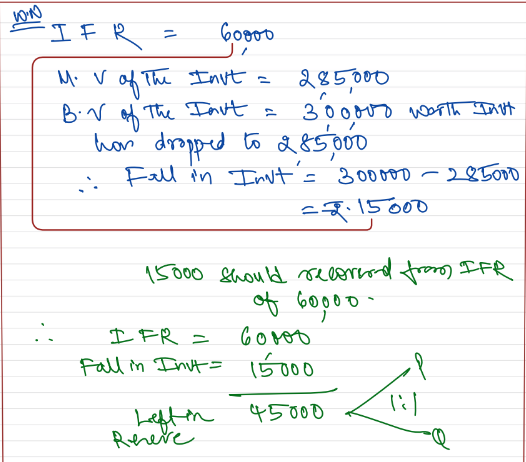 WN
I F R = 60000
M. V of The Invt = 285,000
B. V of The Invt = 300,000 worth Invt
has dropped to 285,000
∴ Fall in Invt = 300000 - 285000
= ₹. 15000
15000 should recovered from IFR
of 60,000.
∴ IFR = 60000
Fall in Invt = 15000
Left in 45000 P
Reserve 1:1
Q